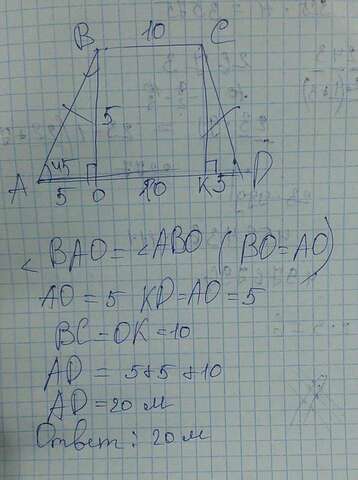 B 10 C
5
45
A 5 O 10 K 5 D
∠BAO = ∠ABO (BO=AO)
AO = 5 KD=AO=5
BC=OK=10
AD = 5+5+10
AD=20 м
Ответ: 20 м